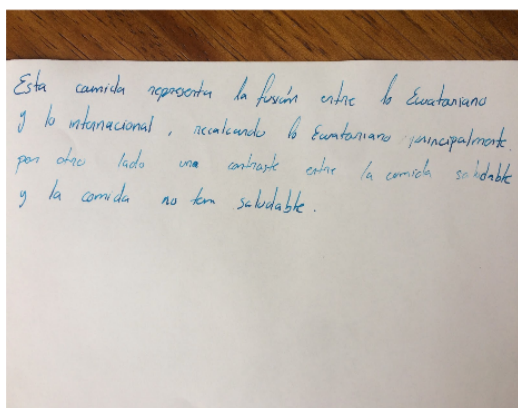 Esta comida representa la fusión entre lo Ecuatoriano
y lo internacional, recalcando lo Ecuatoriano principalmente.
por otro lado una contraste entre la comida saludable
y la comida no tan saludable.